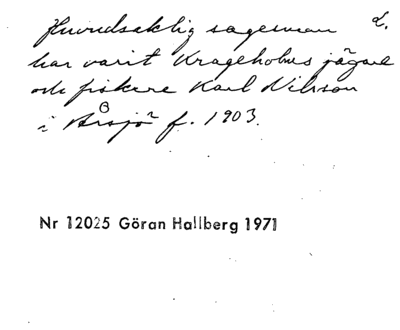 Huvudsaklig sagesman
har varit Krageholms jägare
och fiskare Karl Nilsson
i Årsjö f. 1903.
Nr 12025 Göran Hallberg 1971